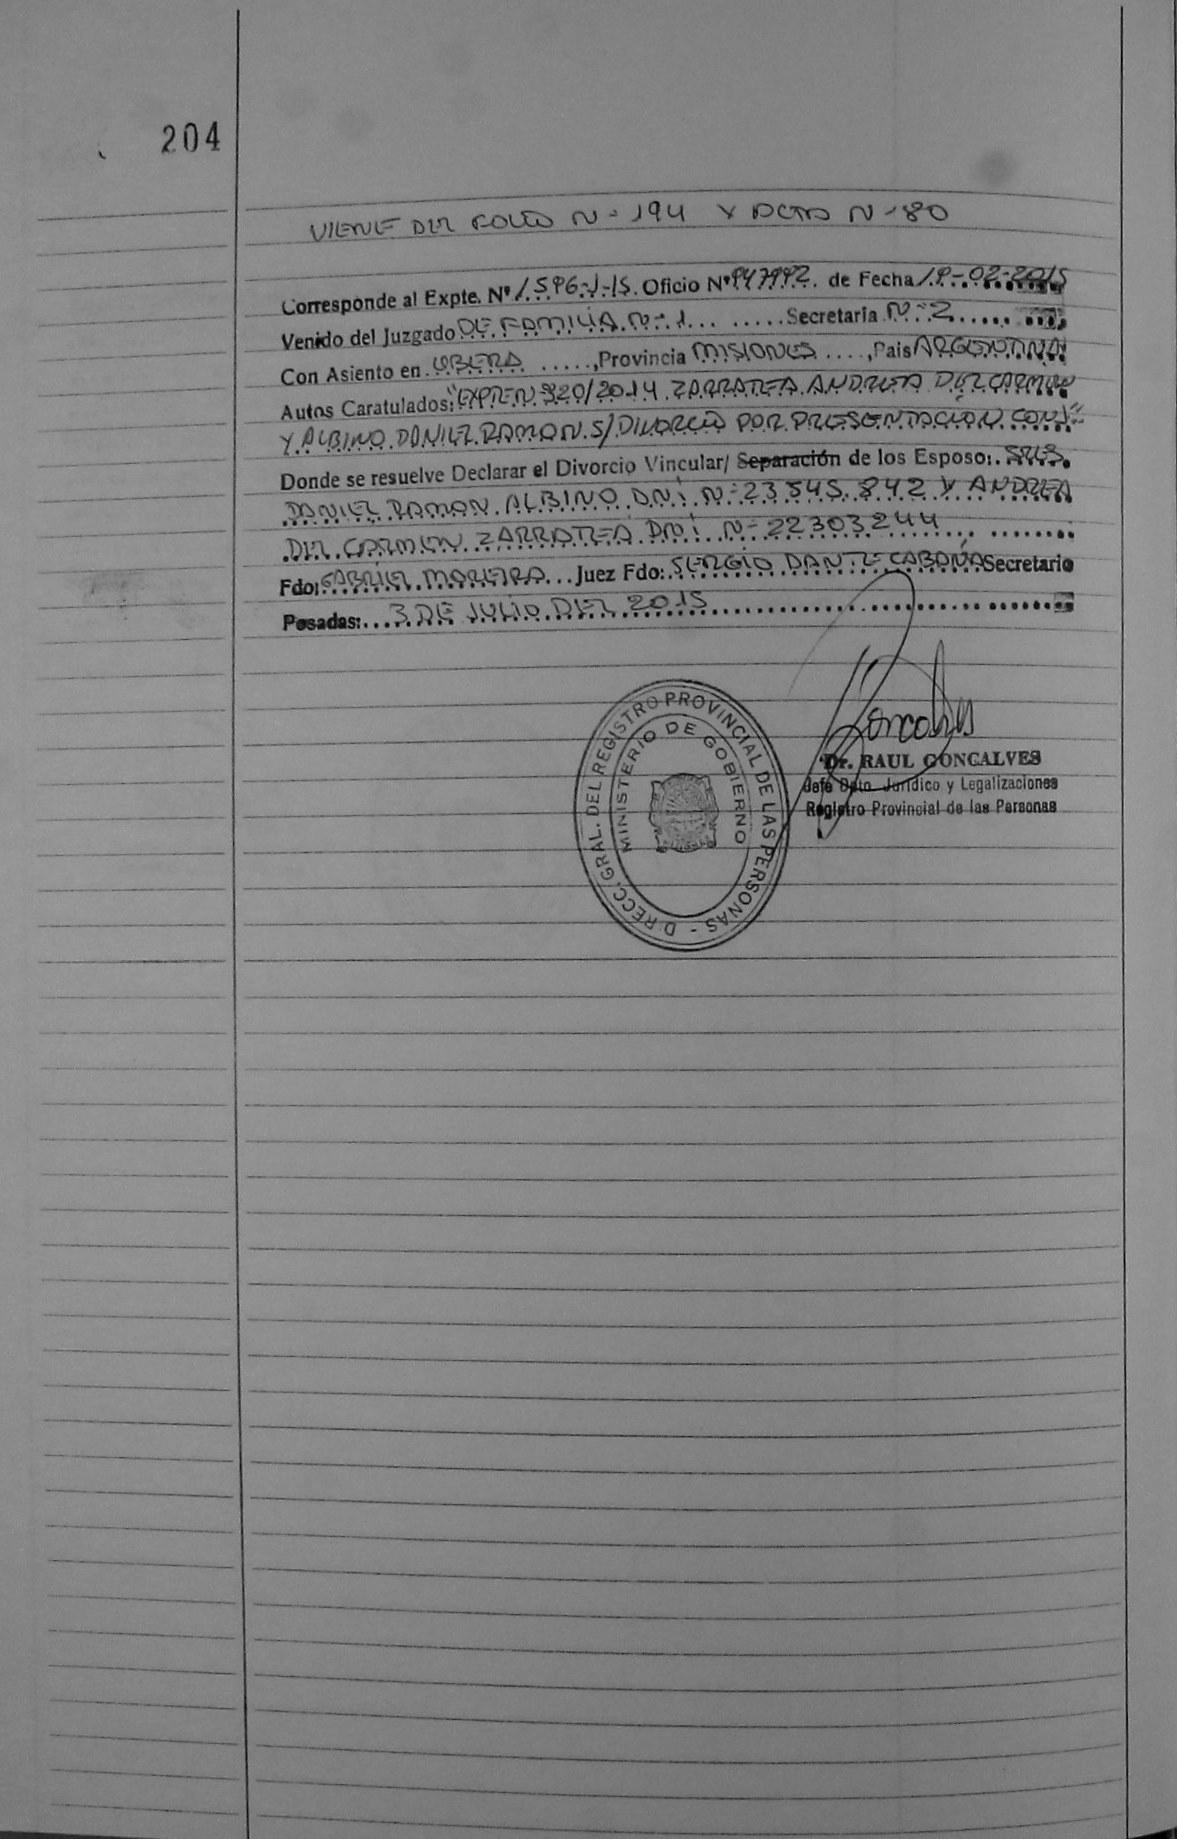 204
VIENE DEL FOLIO N-194 Y ACTA N-80
Corresponde al Expte. Nº 1596-J-15. Oficio Nº 947992. de Fecha 19-02-2015
Venido del Juzgado DE FAMILIA N-1... .....Secretaria N-2......
Con Asiento en OBERA .....,Provincia MISIONES ....,Pais ARGENTINA
Autos Caratulados: "EXPTE N-320/2014 ZARRATEA ANDREA DEL CARMEN
Y ALBINO DANIEL RAMON S/ DIVORCIO POR PRESENTACION CONJ"
Donde se resuelve Declarar el Divorcio Vincular/ Separación de los Esposo: SRES.
DANIEL RAMON ALBINO DNI N-23545.842 Y ANDREA
DEL CARMEN ZARRATEA DNI N-22303244
Fdo: GABRIEL MOREIRA... Juez Fdo: SERGIO DANTE CABAÑA Secretario
Posadas:...3 DE JULIO DEL 2015
DIRECC. GRAL. DEL REGISTRO PROVINCIAL DE LAS PERSONAS -
MINISTERIO DE GOBIERNO
Dr. RAUL GONCALVES
Jefe Dpto. Jurídico y Legalizaciones
Registro Provincial de las Personas